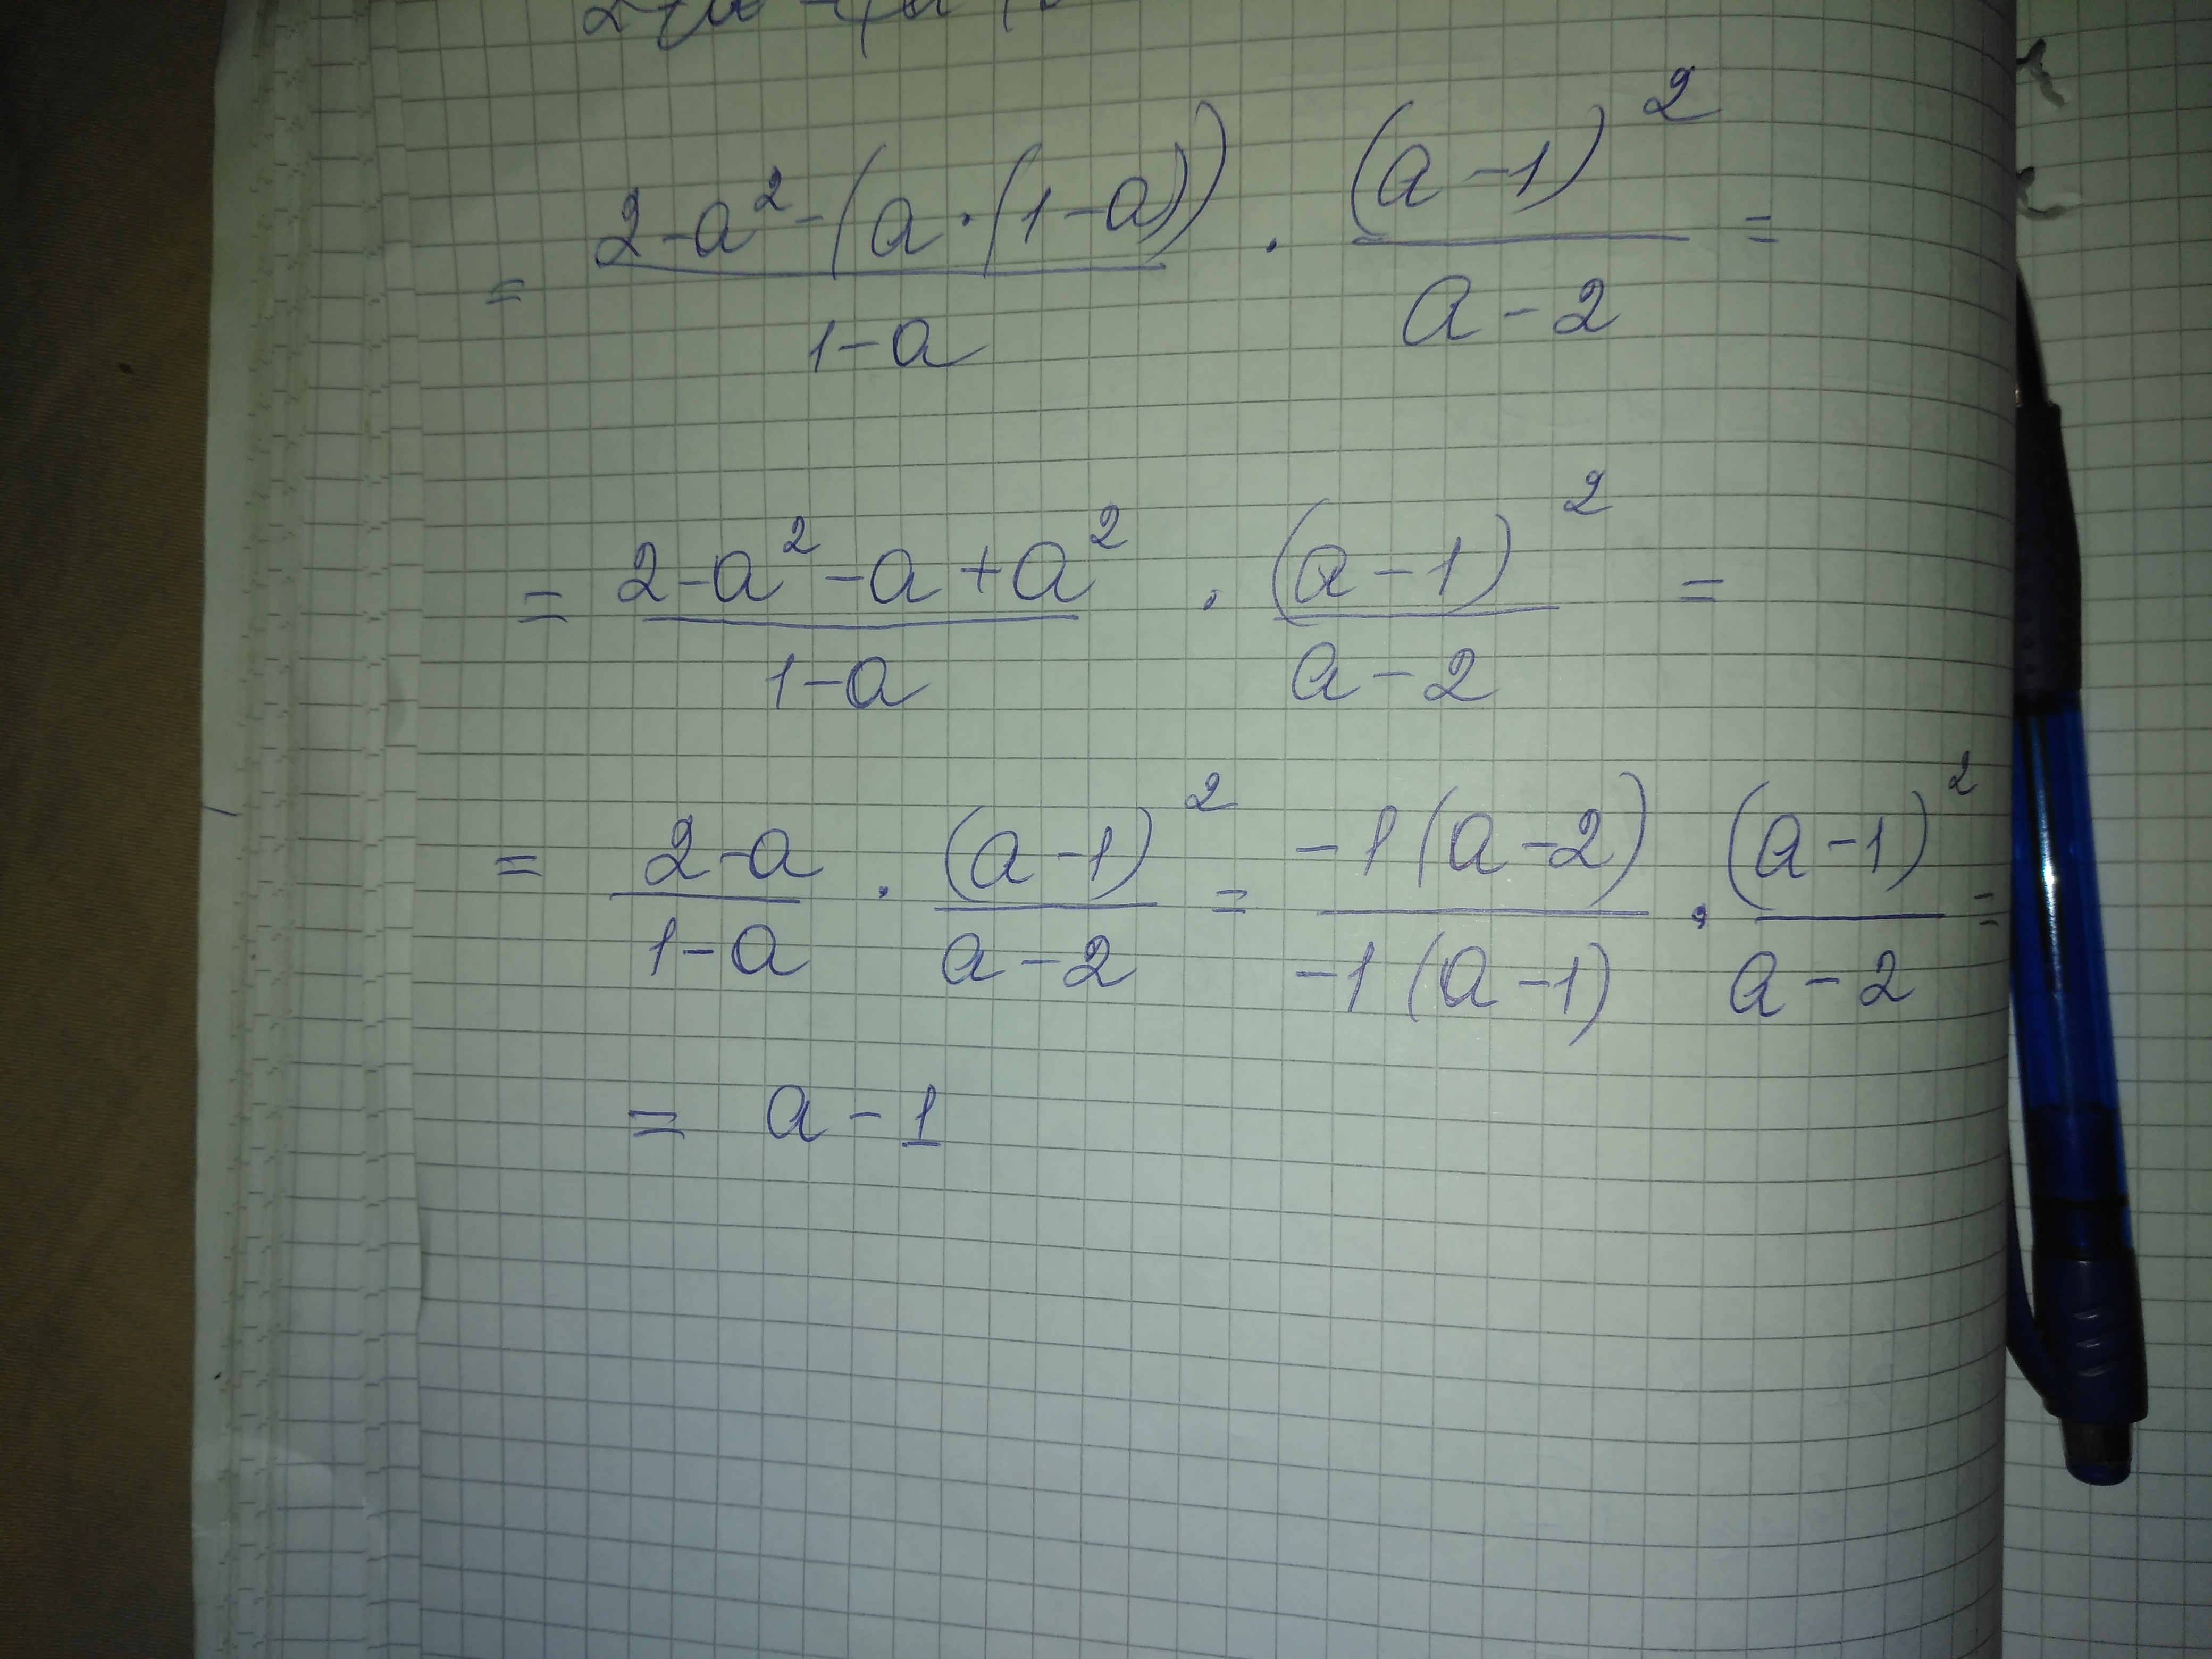 = (2-a²-(a·(1-a)))/(1-a) · (a-1)²/(a-2) =
= (2-a²-a+a²)/(1-a) · (a-1)²/(a-2) =
= (2-a)/(1-a) · (a-1)²/(a-2) = (-1(a-2))/(-1(a-1)) · (a-1)²/(a-2) =
= a-1